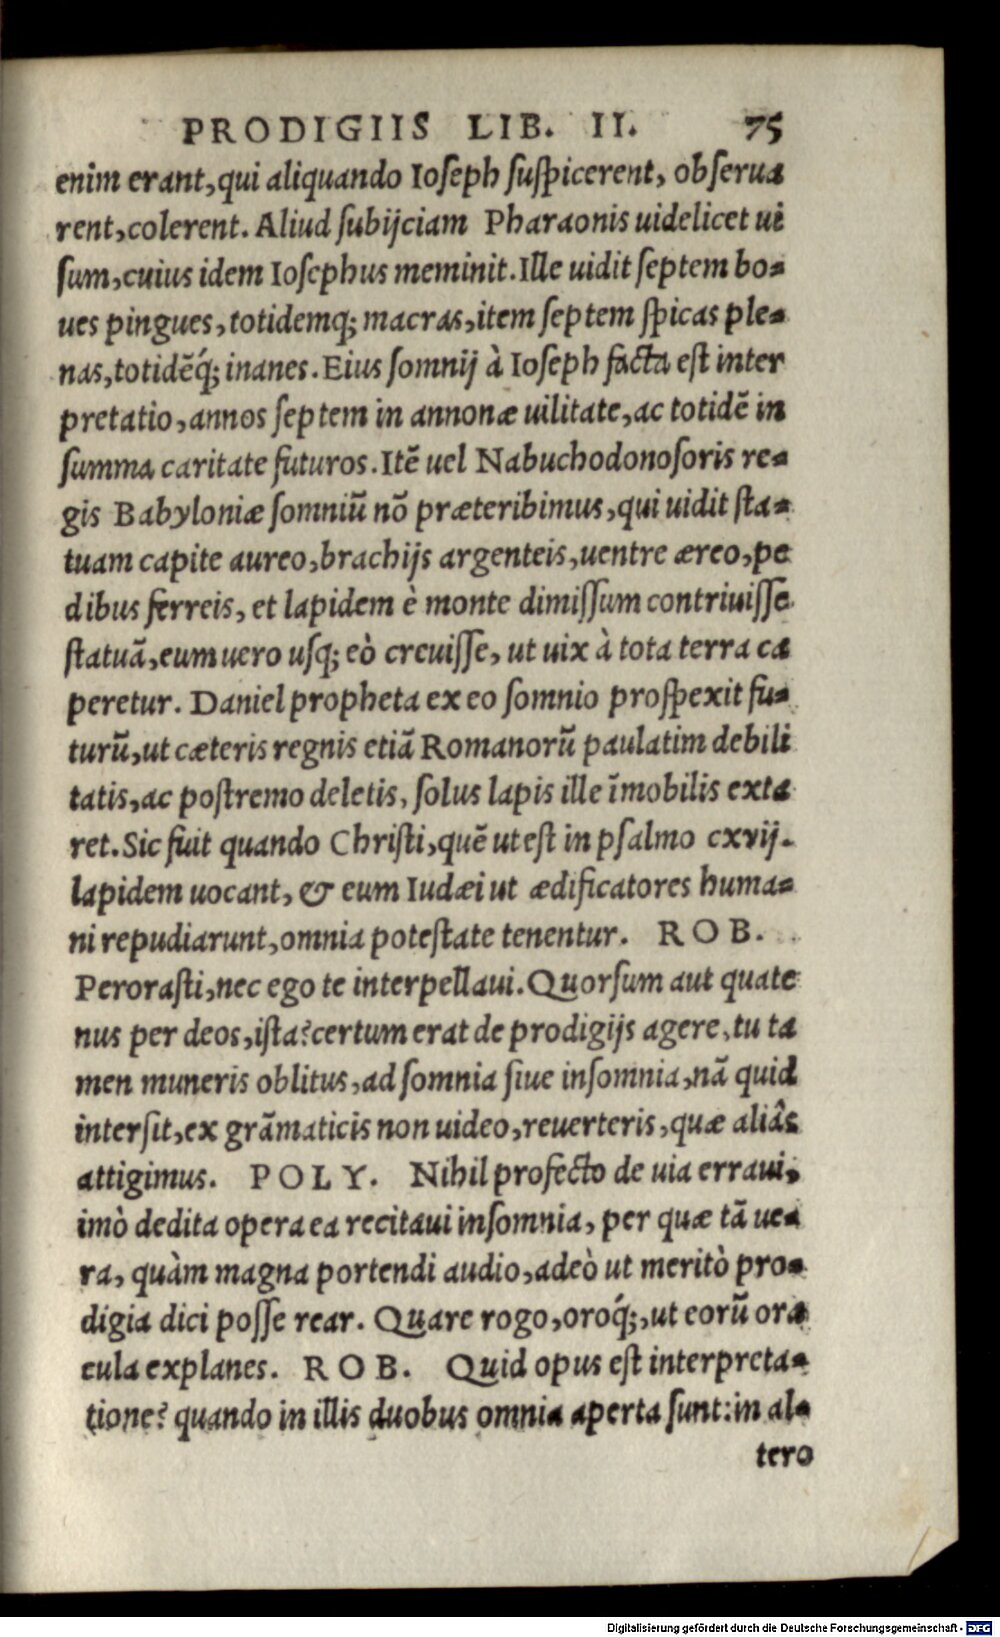 PRODIGIIS LIB. II. 75
enim erant, qui aliquando Ioseph suspicerent, obserua
rent, colerent. Aliud subijciam Pharaonis uidelicet ui
sum, cuius idem Iosephus meminit. Ille uidit septem bo-
ues pingues, totidemq; macras, item septem spicas ple-
nas, totidẽq́; inanes. Eius somnij à Ioseph facta est inter
pretatio, annos septem in annonæ uilitate, ac totidẽ in
summa caritate futuros. Itẽ uel Nabuchodonosoris re-
gis Babyloniæ somniũ nõ præteribimus, qui uidit sta-
tuam capite aureo, brachijs argenteis, uentre æreo, pe
dibus ferreis, et lapidem è monte dimissum contriuisse
statuã, eum uero usq; eò creuisse, ut uix à tota terra ca
peretur. Daniel propheta ex eo somnio prospexit fu-
turũ, ut cæteris regnis etiã Romanorũ paulatim debili
tatis, ac postremo deletis, solus lapis ille ĩmobilis exta
ret. Sic fuit quando Christi, quẽ ut est in psalmo cxvij.
lapidem uocant, & eum Iudæi ut ædificatores huma-
ni repudiarunt, omnia potestate tenentur. ROB.
Perorasti, nec ego te interpellaui. Quorsum aut quate
nus per deos, ista? certum erat de prodigijs agere, tu ta
men muneris oblitus, ad somnia siue insomnia, nã quid
intersit, ex grãmaticis non uideo, reuerteris, quæ aliâs
attigimus. POLY. Nihil profecto de uia erraui,
imò dedita opera ea recitaui insomnia, per quæ tã ue-
ra, quàm magna portendi audio, adeò ut meritò pro-
digia dici posse rear. Quare rogo, oroq́;, ut eorũ ora
cula explanes. ROB. Quid opus est interpreta-
tione? quando in illis duobus omnia aperta sunt: in al-
tero
Digitalisierung gefördert durch die Deutsche Forschungsgemeinschaft - DFG